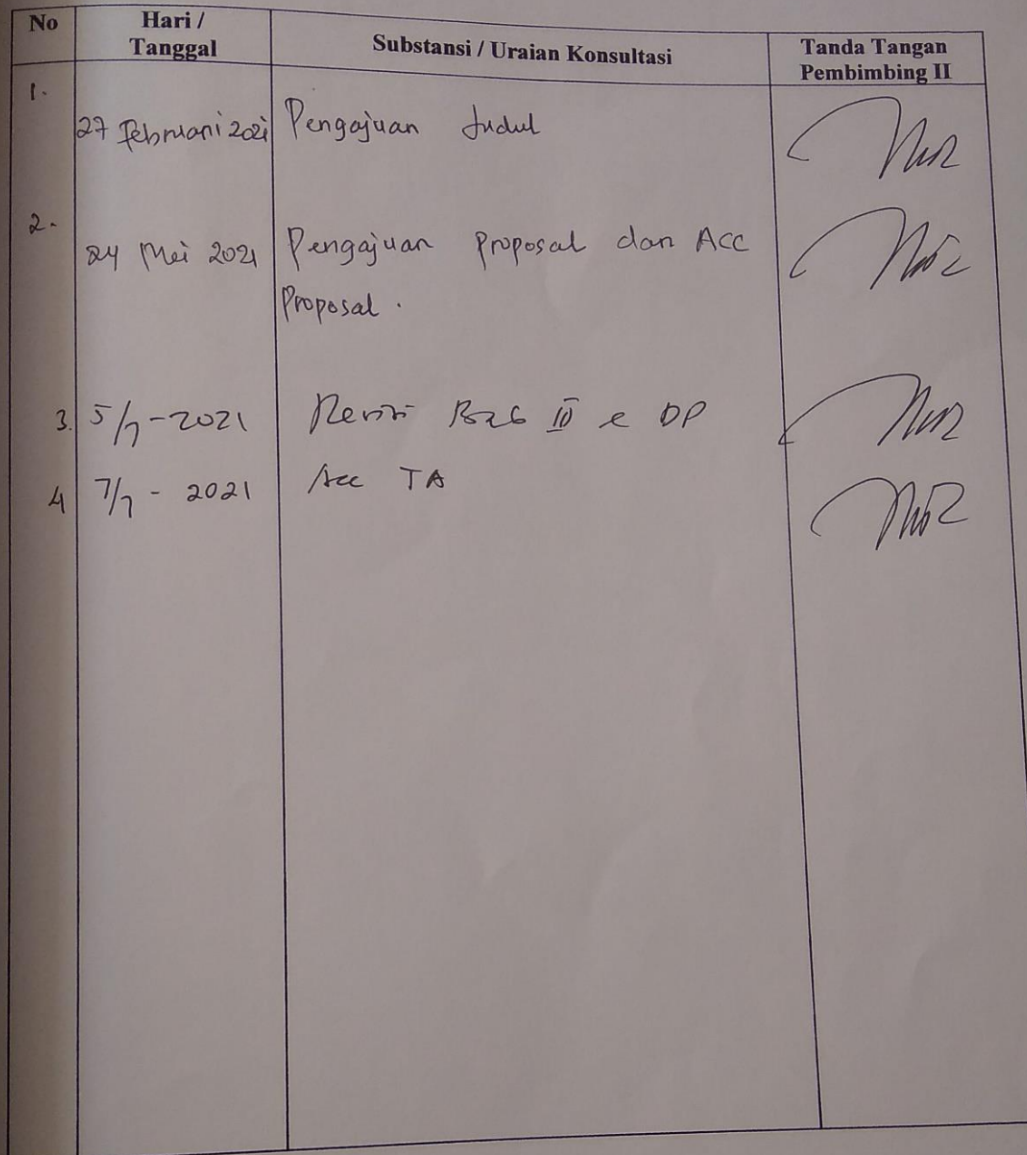 No Hari / Tanggal Substansi / Uraian Konsultasi Tanda Tangan Pembimbing II
1.
27 Februari 2021 Pengajuan Judul
2.
24 Mei 2021 Pengajuan Proposal dan Acc
Proposal.
3. 5/7-2021 Revisi Bab DP
4 7/7 - 2021 Acc TA